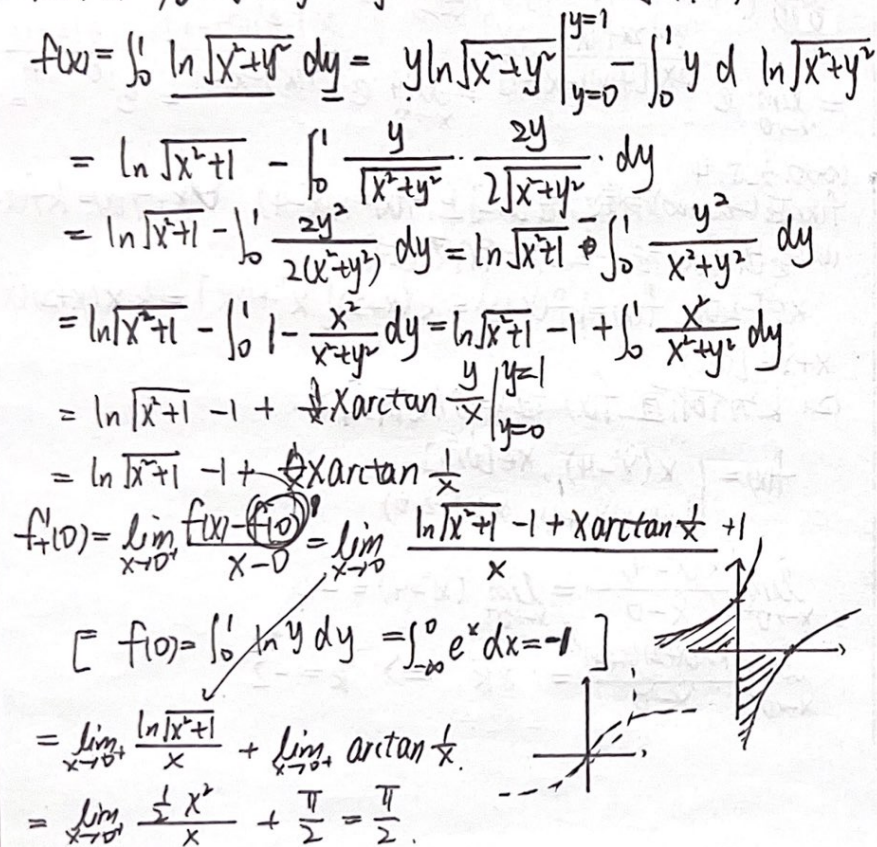 f(x) = ∫₀¹ ln√(x²+y²) dy = y ln√(x²+y²) |_{y=0}^{y=1} - ∫₀¹ y d ln√(x²+y²)
= ln√(x²+1) - ∫₀¹ y/√(x²+y²) · 2y/(2√(x²+y²)) · dy
= ln√(x²+1) - ∫₀¹ 2y²/(2(x²+y²)) dy = ln√(x²+1) - ∫₀¹ y²/(x²+y²) dy
= ln√(x²+1) - ∫₀¹ 1 - x²/(x²+y²) dy = ln√(x²+1) - 1 + ∫₀¹ x²/(x²+y²) dy
= ln√(x²+1) - 1 + x arctan y/x |_{y=0}^{y=1}
= ln√(x²+1) - 1 + x arctan 1/x
f'₊(0) = lim_{x→0⁺} (f(x) - f(0))/(x-0) = lim_{x→0} (ln√(x²+1) - 1 + x arctan 1/x + 1)/x
[ f(0) = ∫₀¹ ln y dy = ∫_{-∞}^0 eˣ dx = -1 ]
= lim_{x→0⁺} ln√(x²+1)/x + lim_{x→0⁺} arctan 1/x.
= lim_{x→0⁺} (½x²)/x + π/2 = π/2.